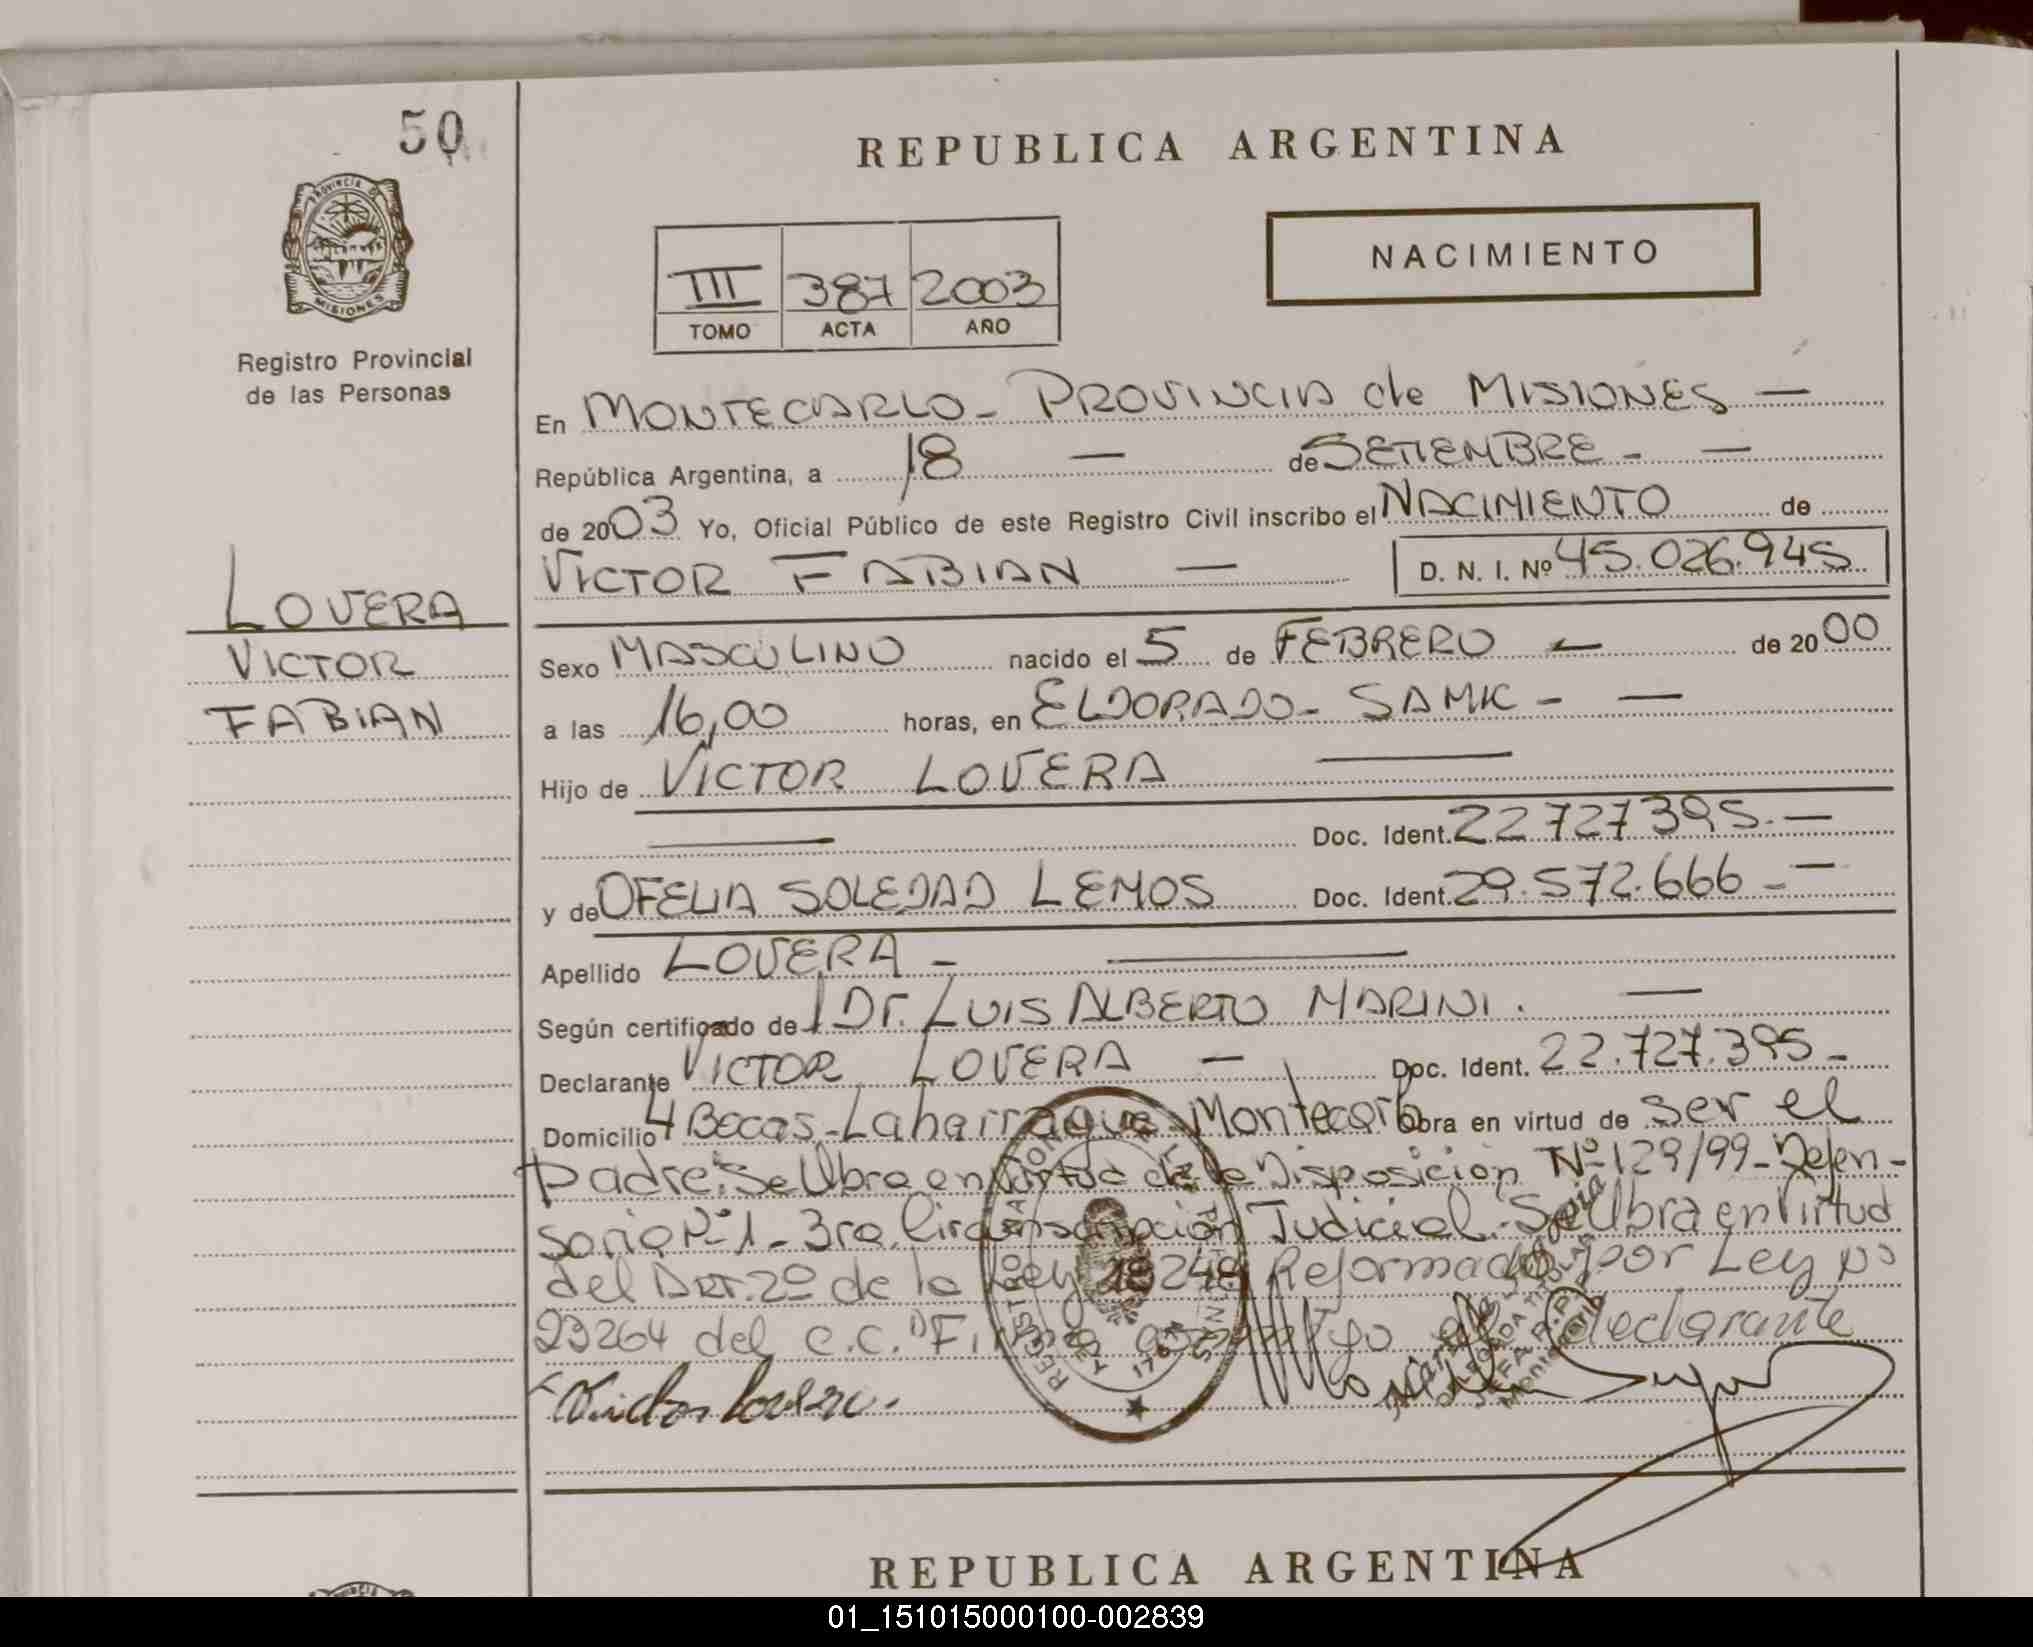 50
REPUBLICA ARGENTINA
PROVINCIA DE
MISIONES
NACIMIENTO
III 387 2003
TOMO ACTA AÑO
Registro Provincial
de las Personas
En MONTECARLO - PROVINCIA de MISIONES —
República Argentina, a 18 — de SETIEMBRE - —
de 2003 Yo, Oficial Público de este Registro Civil inscribo el NACIMIENTO de
VICTOR FABIAN — D. N. I. Nº 45.026.945
LOVERA
VICTOR
FABIAN
Sexo MASCULINO nacido el 5 de FEBRERO — de 2000
a las 16,00 horas, en ELDORADO - SAMIC - —
Hijo de VICTOR LOVERA —
— Doc. Ident. 22727395.—
y de OFELIA SOLEDAD LEMOS Doc. Ident. 29.572.666 - —
Apellido LOVERA - —
Según certificado de Dr. LUIS ALBERTO MARINI. —
Declarante VICTOR LOVERA — Doc. Ident. 22.727.395 -
Domicilio 4 Bocas - Laharrague - Montecarlo Obra en virtud de ser el
padre. Se Obra en Virtud de la Disposición Nº 129/99 - Defen-
soria Nº 1 - 3ra. Circunscripción Judicial. Se Obra en Virtud
del ART. 2º de la Ley 18248 Reformado por Ley Nº
23264 del C.C. Firma conmigo el declarante
Victor Lovera.
REPUBLICA ARGENTINA
01_151015000100-002839